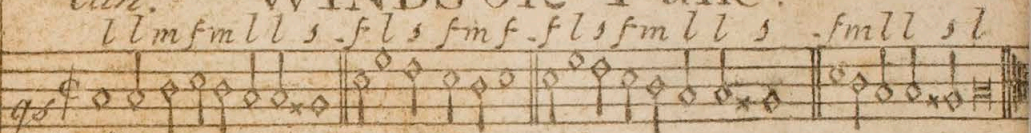 WINDSOR Tune.
l l m f m l l s . f l s f m f . f l s f m l l s . f m l l s l